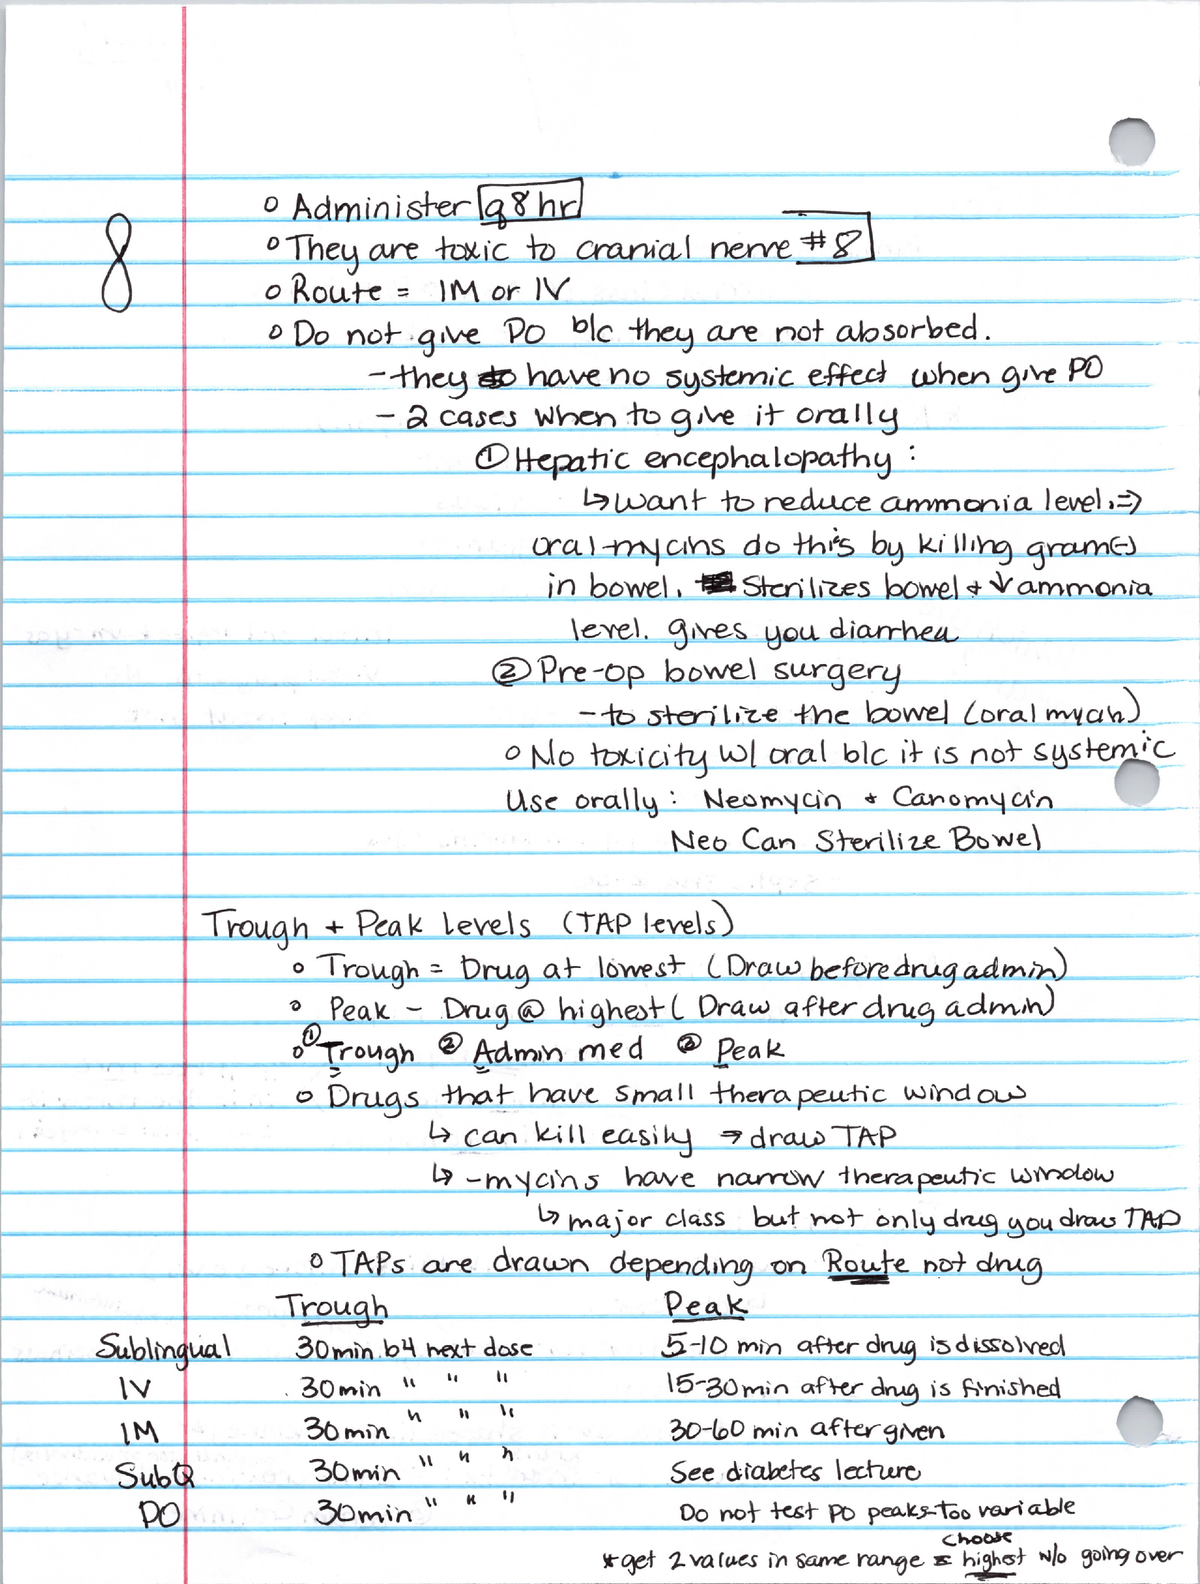 8
o Administer q8hr
o They are toxic to cranial nerve #8
o Route = IM or IV
o Do not give PO b/c they are not absorbed.
- they have no systemic effect when give PO
- 2 cases when to give it orally
① Hepatic encephalopathy :
↳ want to reduce ammonia level. ⇒
oral-mycins do this by killing gram(-)
in bowel. Sterilizes bowel + ↓ ammonia
level. gives you diarrhea
② Pre-op bowel surgery
- to sterilize the bowel (oral mycin)
o No toxicity w/ oral b/c it is not systemic
Use orally : Neomycin + Canomycin
Neo Can Sterilize Bowel
Trough + Peak Levels (TAP levels)
o Trough = Drug at lowest (Draw before drug admin)
o Peak - Drug @ highest ( Draw after drug admin)
o ① Trough ② Admin med ② Peak
o Drugs that have small therapeutic window
↳ can kill easily → draw TAP
↳ -mycins have narrow therapeutic window
↳ major class but not only drug you draw TAP
o TAPs are drawn depending on Route not drug
Trough Peak
Sublingual 30min b4 next dose 5-10 min after drug is dissolved
IV 30min " " " 15-30min after drug is finished
IM 30min " " " 30-60 min after given
SubQ 30min " " " See diabetes lecture
PO 30min " " " Do not test PO peaks-Too variable
choose
* get 2 values in same range highest w/o going over